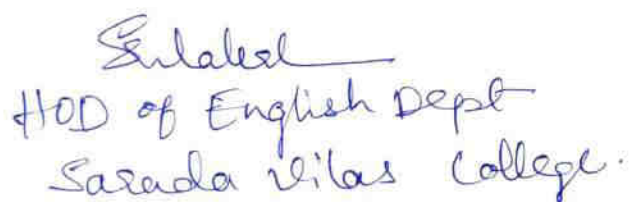 HOD of English Dept
Sarada Vilas College.